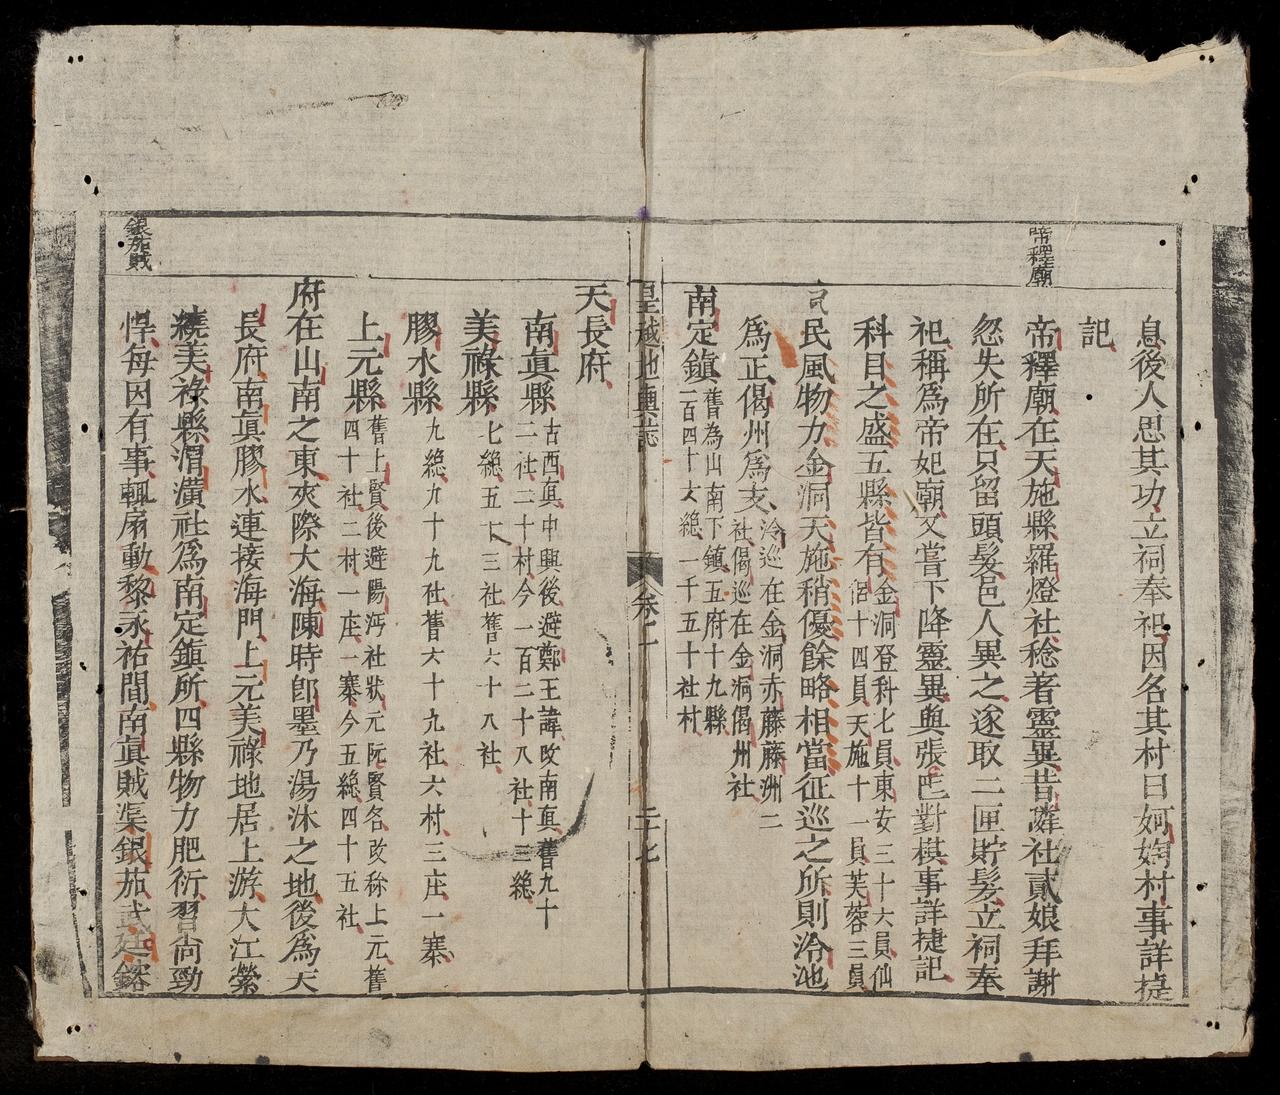 帝釋廟
息後人思其功立祠奉祀因名其村曰妸㛦村事詳捷
記
帝釋廟在天施縣羅燈社稔著靈異昔鄰社貳娘拜謝
忽失所在只留頭髮邑人異之遂取二匣貯髣立祠奉
祀稱爲帝妃廟又嘗下降靈異與張巴對棋事詳捷記
科目之盛五縣皆有金洞登科七員東安三十六員仙
侶十四員天施十一員芙蓉三員
民風物力金洞天施稍優餘略相當征巡之所則泠池
爲正偈州爲支泠巡在金洞赤藤藤洲二
社偈巡在金洞偈州社
南定鎮舊為山南下鎮五府十九縣
一百四十六總一千五十社村
皇越地輿誌
卷一
二十七
天長府
南眞縣古西眞中興後避鄭王諱改南眞舊九十
二社二十村今一百二十八社十三總
美祿縣七總五十三社舊六十八社
膠水縣九總九十九社舊六十九社六村三庄一寨
上元縣舊上賢後避陽沔社狀元阮賢名改稱上元舊
四十社二村一庄一寨今五總四十五社
府在山南之東夾際大海陳時卽墨乃湯沐之地後爲天
長府南眞膠水連接海門上元美祿地居上游大江縈
繞美祿縣渭潢社爲南定鎮所四縣物力肥衍習尚勁
悍每因有事輒扇動黎永祐間南眞賊渠銀茄武廷鎔
銀茄賊